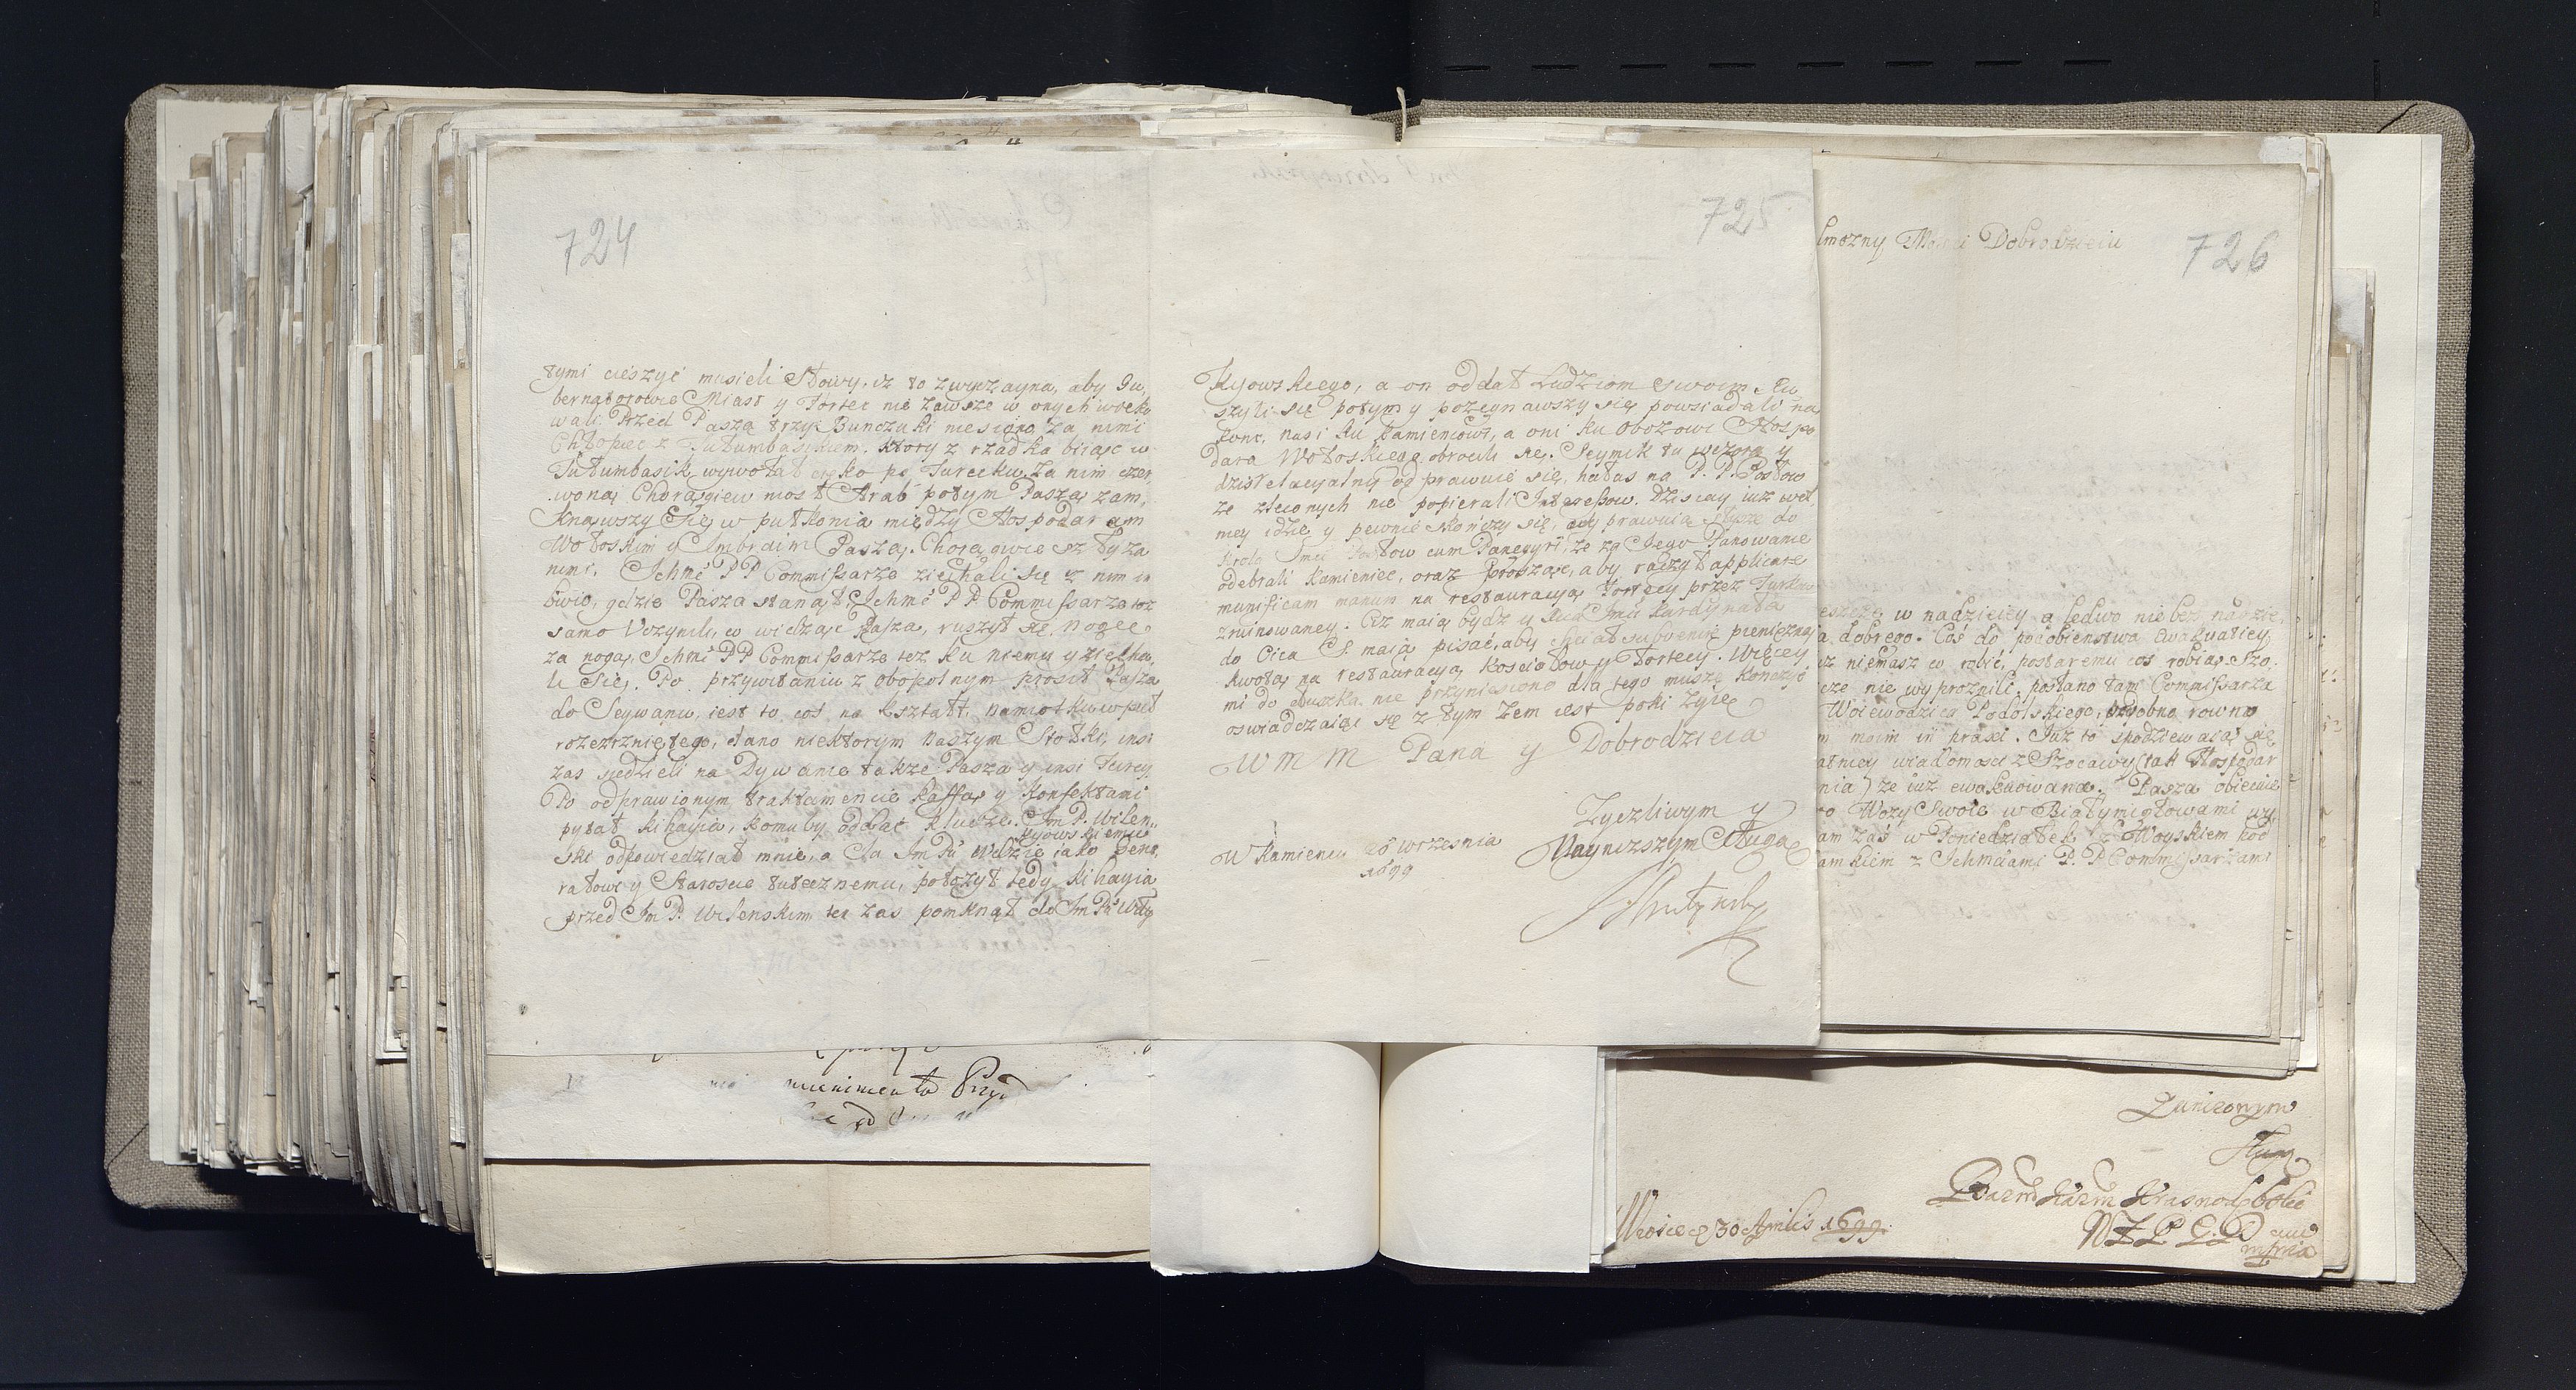 724
tymi cieszyć musieli Słowy, iz to zwyczayna, aby Gu,
bernatorowie Miast y Fortec nie zawsze w onych wieko
wali. Przed Paszą trzy Bunczuki niesiono za nimi
Chłopiec z Tułumbasikiem, ktory z rzadka biiąc w
Tułumbasik wywołał coś ko po Turecku, za nim czer,
woną Chorągiew niosł Arab potym Pasza zam,
knąwszy Się w putkonia między Hospodarem
Wołoskim y Imbraim Paszą. Chorągwie sz ły za
nimi. Ichmć PP Commissarze ziechali się z nim in
bivio, gdzie Pasza stanął, Ichmć PP Commissarze toz
samo Vczynili, co widząc Pasza, ruszył się, noga
za nogą, Ichmć PP Commissarze tez ku niemu y ziecha,
li Się. Po przywitaniu z obopolnym prosił Pasza
do Seywanu, iest to coś na kształt namiotku wpuł
rozerzniętego, dano niektorym naszym Stołki, insi
zas siedzieli na Dywanie takze Pasza y insi Turcy
Po odprawionym traktamencie Kaffą y Konfektami
pytał kihayia, komuby oddać klucze. Im P. Wilen,
kyowskiemu
ski odpowiedział mnie, a Ja Im Pu Wdzie iako Gene,
rałowi y Staroscie tutecznemu, położył tedy kihayia
przed Im P. Wilenskim ten zas pomknął do Im Pa Wdy
725
Kyowskiego, a on oddał Ludziom swoim. Ru
szyli się potym y pozegnawszy się powsiadali na
konie, nasi ku Kamieńcowi, a oni ku Obozowi Hospo
dara Wołoskiego obrocili się. Seymik tu wczora y
dzis relacyalny odprawuie się, hałas na P. P. Posłow
ze zleconych nie popierali Interessow. Dzisiay iuz wol
mey idzie y pewnie skończy się, wyprawuią Ich do
Krola Jmci Posłow cum Panegyri, ze za Jego Panowanie
odebrali Kamieniec, oraz prosząc, aby raczył applicare
munificam manum na restauracyą Fortecy przez Turkow
zruinowaney. Ciz maią bydz y u Xcia Jmci Kardynała
do Oica S. maią pisać, aby chciał subvenire pieniężną
kwotą na restauracyą Kosciołow y Fortecy. Więcey
mi do uszka nie przyniesiono dla tego muszę konczyć
oswiadczaiąc się z tym zem iest poki zyię
W M M Pana y Dobrodzieia
Zyczliwym y
Nayniszszym Sługą
W Kamiencu 26 Wrzesnia
1699
726
lmozny Mosci Dobrodzieiu
eszcze w nadzieiey a ledwo nie bez nadzie,
a dobrego. Coś do podobienstwa Ewakuatiey
uz niemasz co robić, postaremu cos robią. Szo,
cze nie wyproznili, posłano tam Commissarza
Woiewodzica Podolskiego, osobno rowno
m moim in praxi. Juz to spodziewaią się
atniey wiadomosci z Szocawy (tak Hospodar
nia) ze iuz ewakuowana. Pasza obiecuie
o Wozy Swoie w Białymigłowami wy,
am zaś w Poniedziałek z Woyskiem pod
amkiem z Ichmciami P. P Commissarzami
munimenta Przy
Zunizonym
Sługą
30 Aprilis 1699.